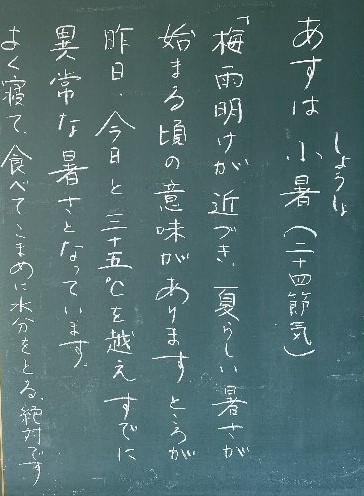 あすは小暑（二十四節気）
しょうしょ
「梅雨明けが近づき、夏らしい暑さが
始まる頃の意味があります。ところが
昨日、今日と三十五℃を越えすでに
異常な暑さとなっています。
よく寝て、食べてこまめに水分をとる、絶対です